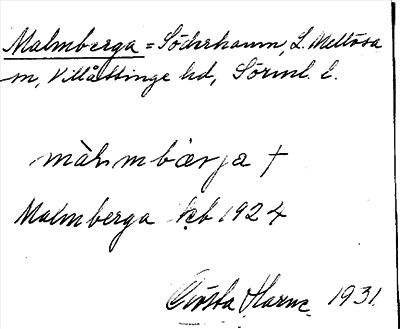 Malmberga = Söderhamn, L. Mellösa
sn, Villåttinge hd, Sörml. l.
màlmbærja †
Malmberga kb 1924
Gösta 1931.